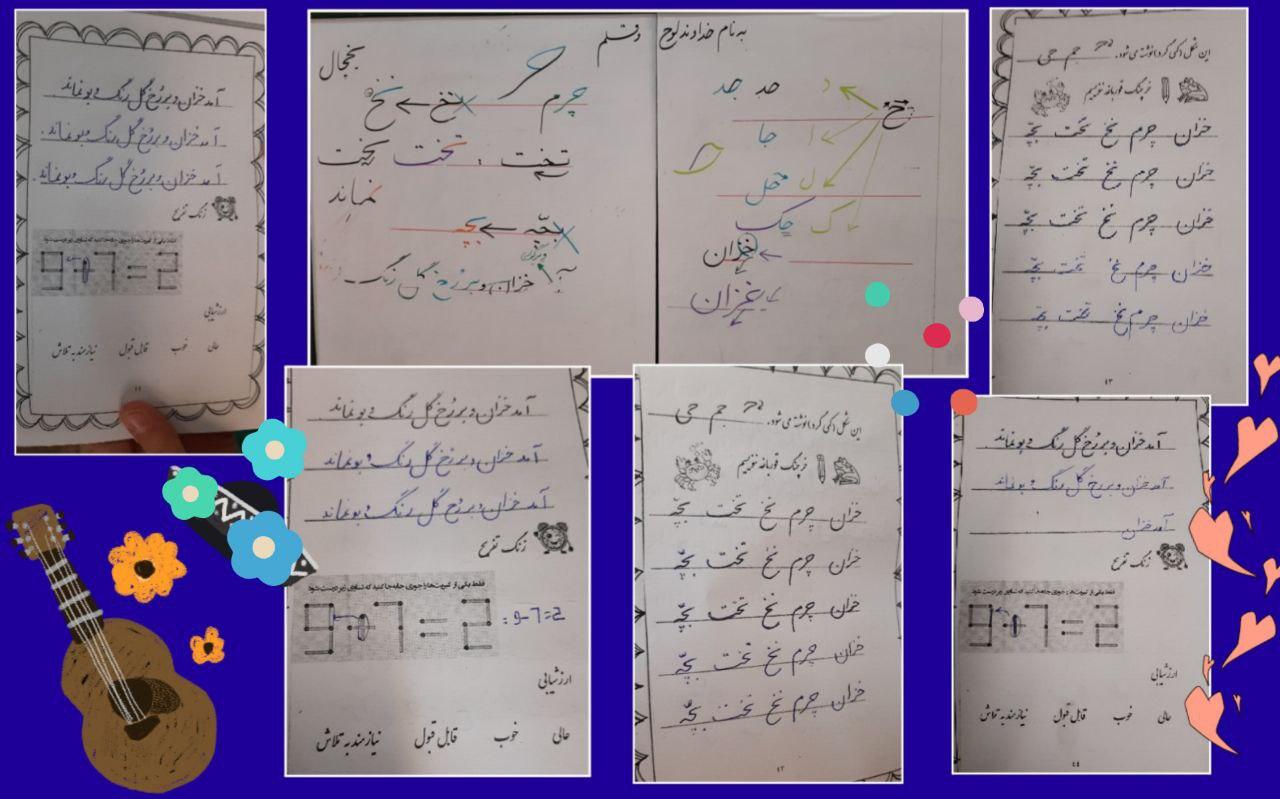 آمد خزان و بر رُخ گل رنگ و بو نماند
آمد خزان و بر رُخ گل رنگ و بو نماند.
آمد خزان و بر رُخ گل رنگ و بو نماند.
زنگ تفریح
فقط یکی از کبریت‌ها را جوری جابه‌جا کنید که تساوی زیر درست شود
ارزشیابی
عالی خوب قابل قبول نیازمند به تلاش
به نام خداوند لوح و قلم
د حد جد
ا جا
ل
ک
خزان
یخچال
چرم
نخ
تخت : تخت
نماند
بچّه بچّه
خزان و بر رُخ گل رنگ
این شکل کمی گردتر نوشته می‌شود.
خرچنگ قورباغه ننویسیم
خزان چرم نخ تخت بچّه
خزان چرم نخ تخت بچّه
خزان چرم نخ تخت بچّه
خزان چرم نخ تخت بچّه
خزان چرم نخ تخت بچّه
۴۳
آمد خزان و بر رُخ گل رنگ و بو نماند
آمد خزان و بر رخ گل رنگ و بو نماند
آمد خزان و بر رُخ گل رنگ و بو نماند
زنگ تفریح
فقط یکی از کبریت‌ها را جوری جابه‌جا کنید که تساوی زیر درست شود
9-7=2
ارزشیابی
عالی خوب قابل قبول نیازمند به تلاش
این شکل کمی گردتر نوشته می‌شود.
خرچنگ قورباغه ننویسیم
خزان چرم نخ تخت بچّه
خزان چرم نخ تخت بچّه
خزان چرم نخ تخت بچّه
خزان چرم نخ تخت بچّه
خزان چرم نخ تخت بچّه
۴۳
آمد خزان و بر رُخ گل رنگ و بو نماند
آمد خزان و بر رخ گل رنگ و بو نماند
آمد خزان
زنگ تفریح
فقط یکی از کبریت‌ها را جوری جابه‌جا کنید که تساوی زیر درست شود
ارزشیابی
عالی خوب قابل قبول نیازمند به تلاش
۴۴